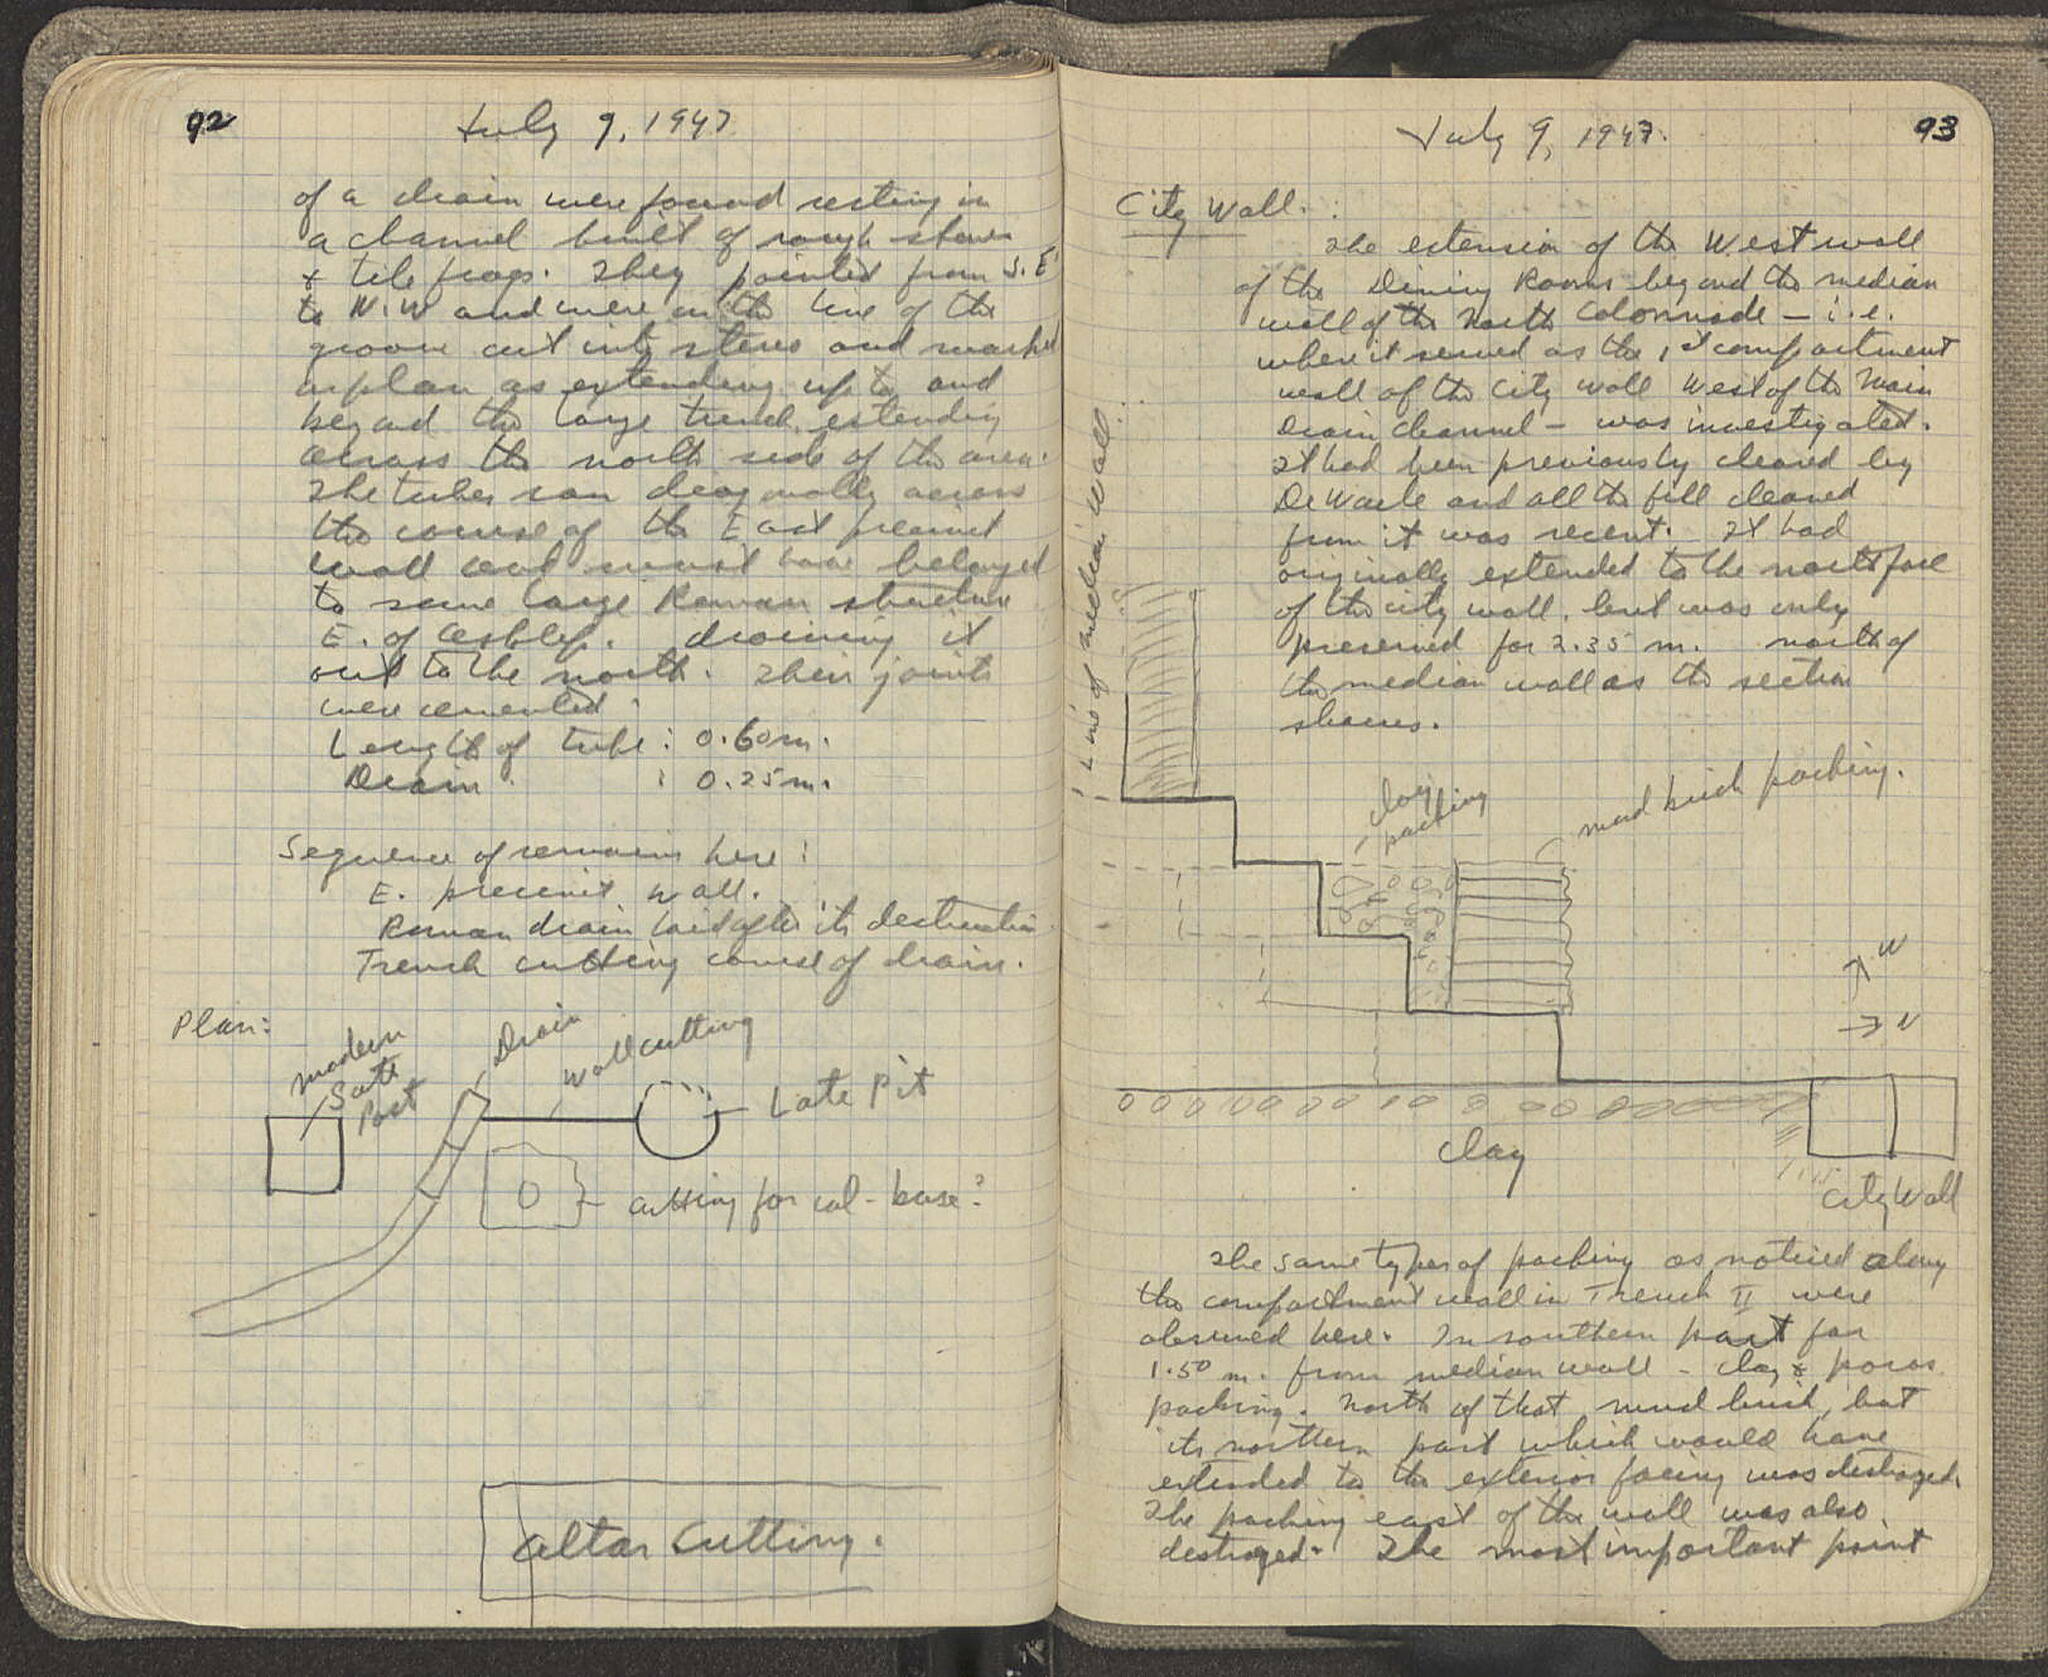 92
July 9, 1947
of a drain were found resting in
a channel built of rough stones
& tile frags. They pointed from S.E.
to N.W and were in the line of the
groove cut into stereo and marked
on plan as extending up to and
beyond the large trench extending
across the north side of the area.
The tubes ran diagonally across
the course of the East precinct
wall and must have belonged
to some large Roman structure
E. of Asklep. draining it
out to the north. Their joints
were cemented.
Length of tube: 0.60m.
Diam. : 0.25m.
Sequence of remains here:
E. precinct wall.
Roman drain laid after its destruction
Trench cutting course of drain.
Plan:
modern
Post
Drain
wall cutting
Late Pit
cutting for col-base?
Altar Cutting.
July 9, 1947.
93
City Wall.:
The extension of the West wall
of the Dining Rooms beyond the median
wall of the North Colonnade – i.e.
where it served as the 1st compartment
wall of the City wall West of the Main
Drain Channel – was investigated.
It had been previously cleared by
De Waele and all the fill cleaned
from it was recent. It had
originally extended to the north face
of the city wall, but was only
preserved for 2.35 m. north of
the median wall as the section
shows.
Line of median Wall.
clay
packing
mud brick packing.
W
N
Clay
City Wall
The same types of packing as noticed along
the compartment wall in Trench II were
observed here. In southern part for
1.50 m. from median wall – clay & poros
packing. North of that mud brick, but
its northern part which would have
extended to the exterior facing was destroyed.
The packing east of the wall was also
destroyed. The most important point